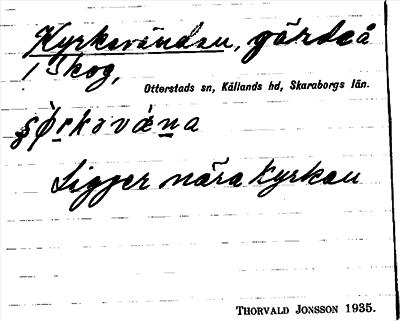 Kyrkevändan, gärdeå
i Skog,
Otterstads sn, Kållands hd, Skaraborgs län.
Ligger nära Kyrkan
THORVALD JONSSON 1935.